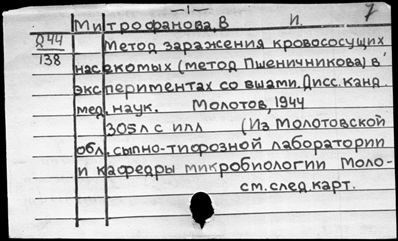 — 1 —
Митрофанова, В И. 7
Д44
138
Метод заражения кровососущих
насекомых (метод Пшеничникова) в
экспериментах со вшами. Дисс. канд.
мед. наук. Молотов, 1944
305 л с илл (Из Молотовской
обл. сыпно-тифозной лаборатории
и кафедры микробиологии Моло-
см. след. карт.